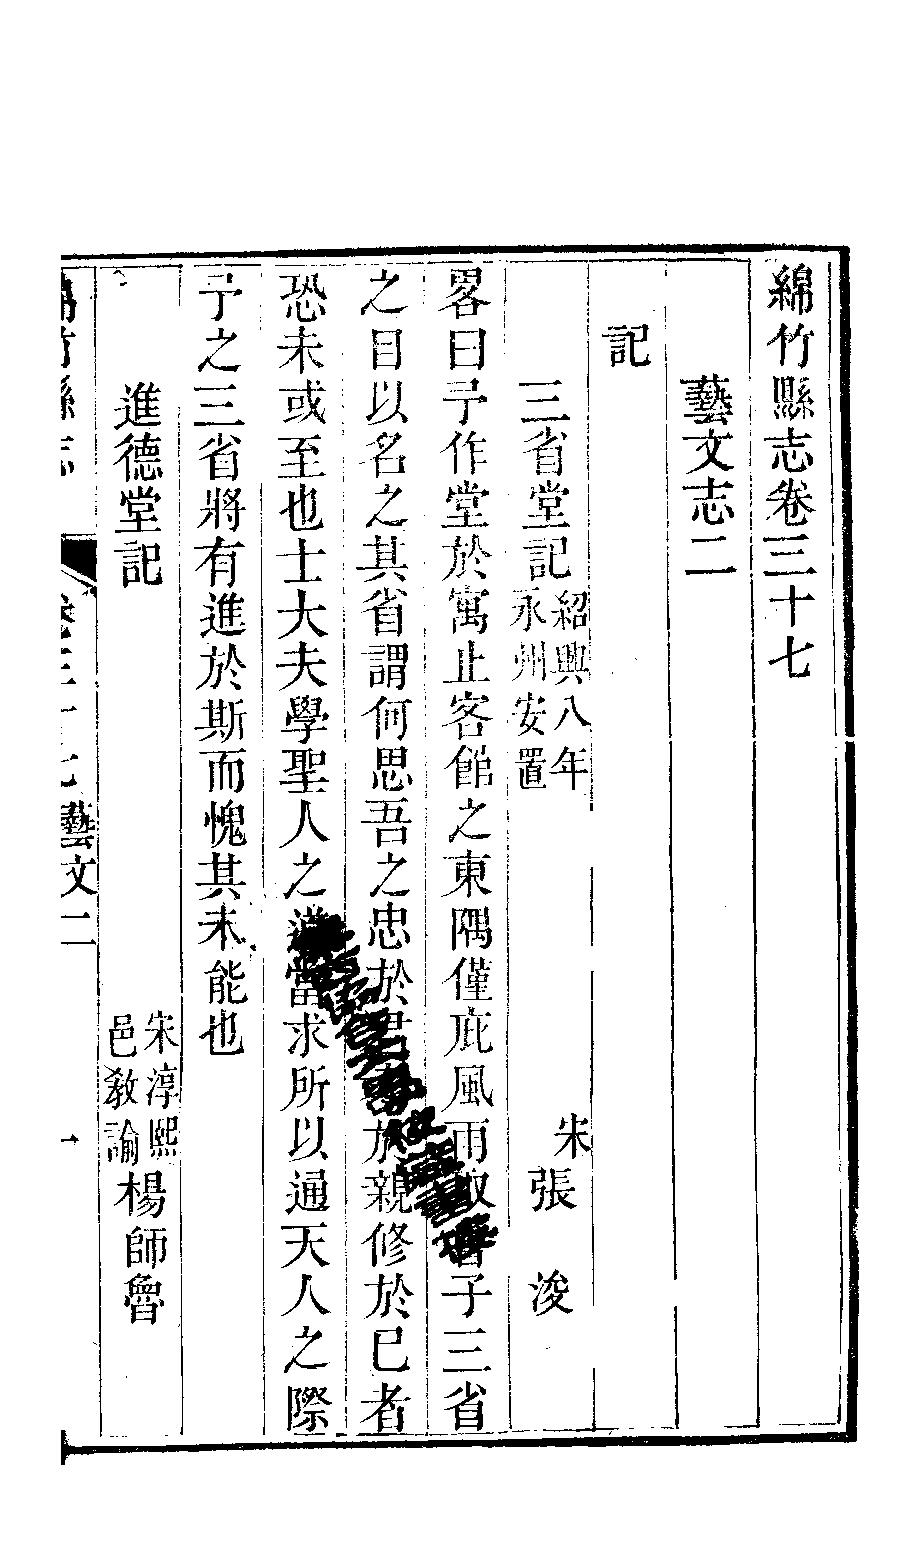 綿竹縣志卷三十七
藝文志二
記
三省堂記 紹興八年永州安置 宋張浚
畧曰予作堂於寓止客館之東隅僅庇風雨取子三省
之目以名之其省謂何思吾之忠於君於親修於已者
恐未或至也士大夫學聖人之道當求所以通天人之際
予之三省將有進於斯而愧其未能也
進德堂記 宋淳熙邑教諭楊師魯
綿竹縣志 卷三十七藝文二 一